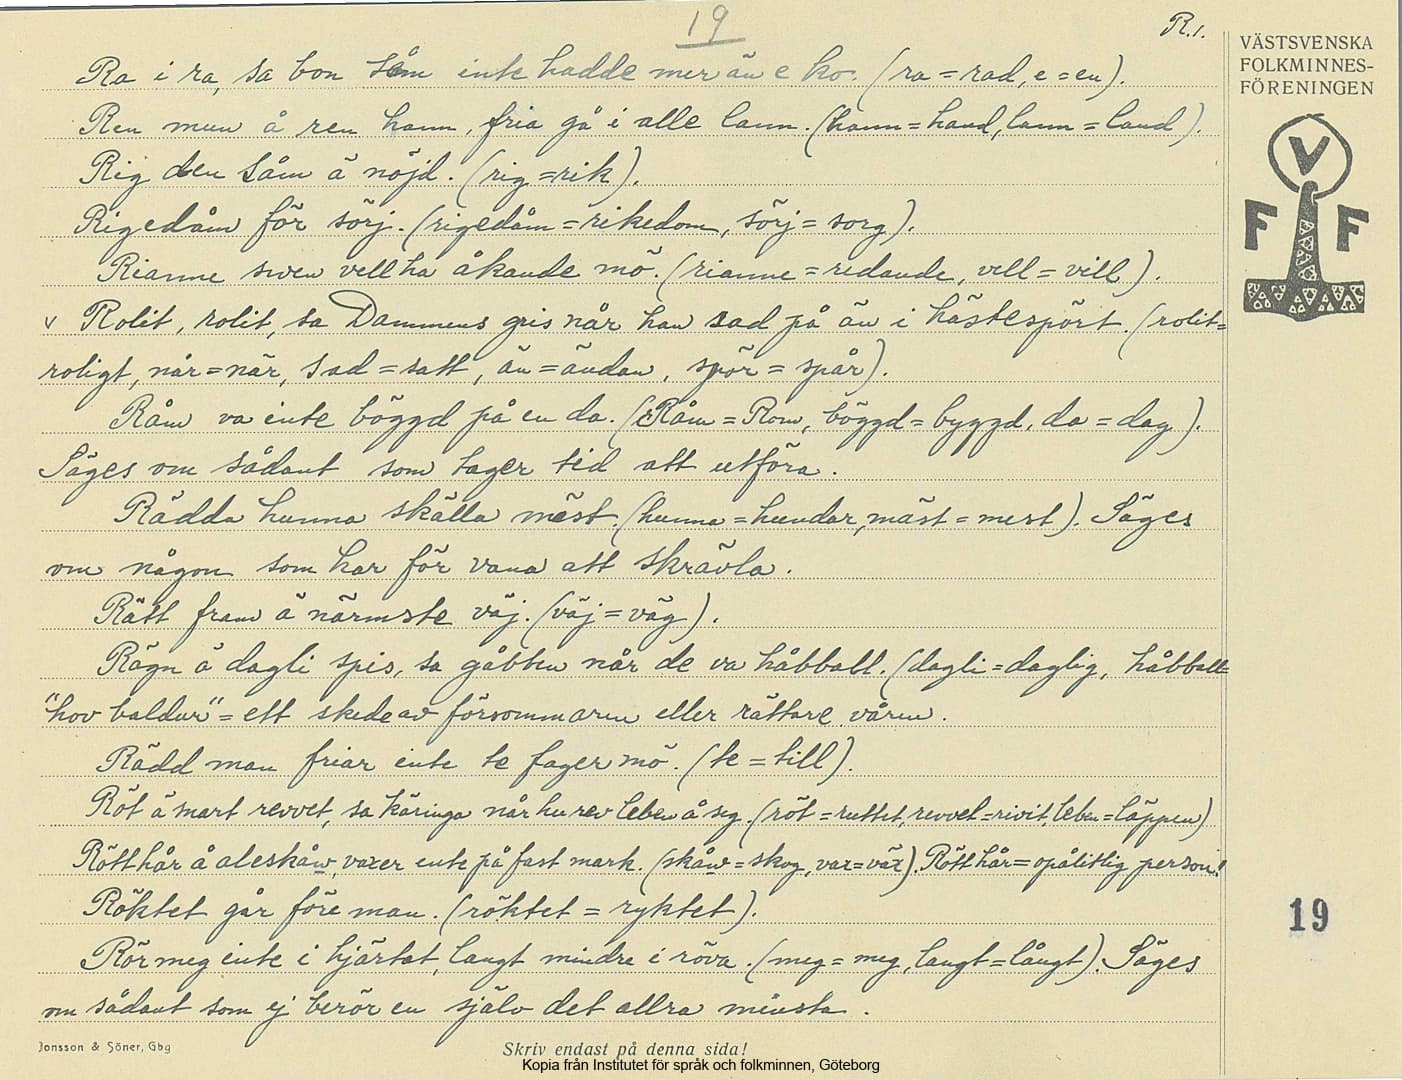 19
R.1.
VÄSTSVENSKA
FOLKMINNES-
FÖRENINGEN
V
F F
Ra i ra, sa bon såm inte hadde mer än e ko. (ra = rad, e = en).
Ren mun å ren hann, fria gå i alle lann. (hann = hand, lann = land).
Rig den såm ä nöjd. (rig = rik).
Rigedåm för sörj. (rigedåm = rikedom, sörj = sorg).
Rianne sven vell ha åkande mö. (rianne = redande, vell = vill).
v Rolit, rolit, sa Dammens gris når han sad på än i hästespört. (rolit =
roligt, når = när, sad = satt, än = ändan, spör = spår).
Råm va inte böggd på en da. (Råm = Rom, böggd = byggd, da = dag).
Säges om sådant som tager tid att utföra.
Rädda hunna skälla mäst. (hunna = hundar, mäst = mest). Säges
om någon som har för vana att skrävla.
Rätt fram ä närmste väj. (väj = väg).
Rägn ä dagli spis, sa gåbben når de va håbball. (dagli = daglig, håbball =
"hov baldur" = ett skede av försommaren eller rättare våren.
Rädd man friar inte te fager mö. (te = till).
Röt ä snart revvet, sa käringa når hu rev leben å sig. (röt = ruttet, revvet = rivit, leben = läppen)
Rött hår å aleskåw, vaxer inte på fast mark. (skåw = skog, vax = väx). Rött hår = opålitlig person!
Röktet går före man. (röktet = ryktet).
Rör meg inte i hjärtat, langt mindre i röva. (meg = mig, langt = långt). Säges
om sådant som ej berör en själv det allra minsta.
19
Jonsson & Söner, Gbg
Skriv endast på denna sida!
Kopia från Institutet för språk och folkminnen, Göteborg